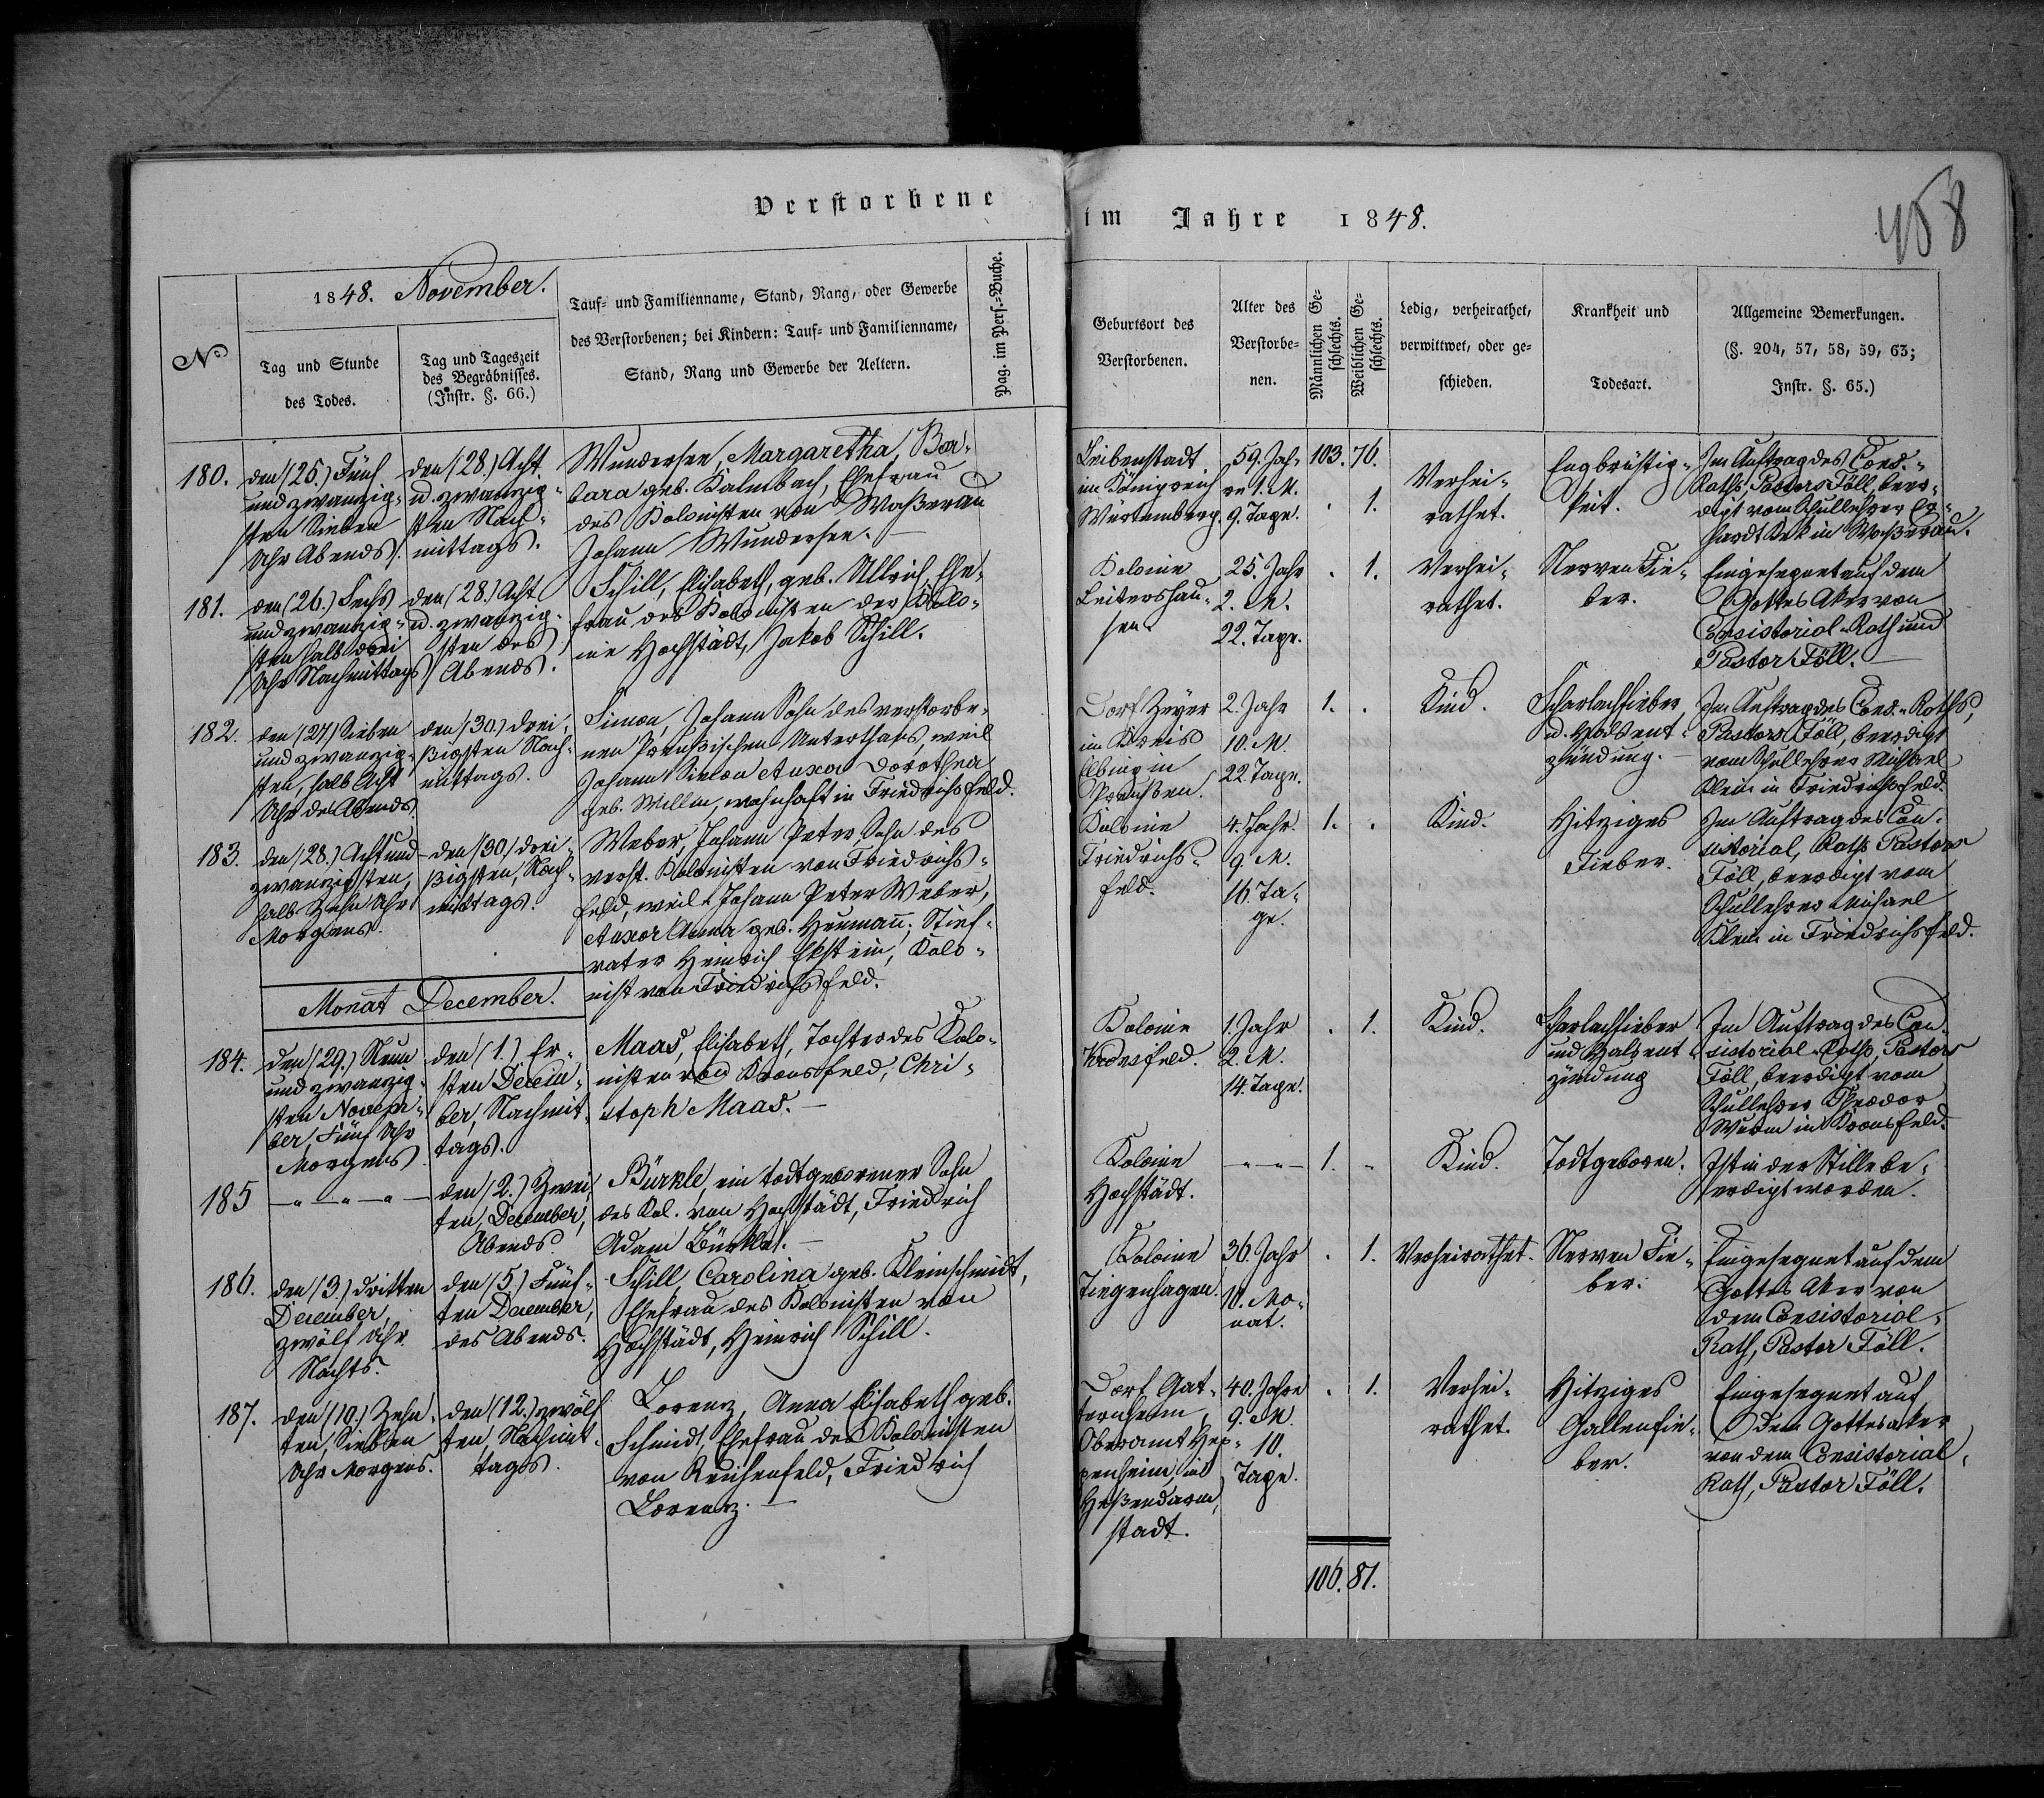 Verstorbene im Jahre 1848.
458
No
1848. November.
Tag und Stunde
des Todes.
Tag und Tageszeit
des Begräbnisses.
(Instr. §. 66.)
Tauf- und Familienname, Stand, Rang, oder Gewerbe
des Verstorbenen; bei Kindern: Tauf- und Familienname,
Stand, Rang und Gewerbe der Aeltern.
Pag. im Pers.-Buche.
Geburtsort des
Verstorbenen.
Alter des
Verstorbe-
nen.
Männlichen Ge-
schlechts.
Weiblichen Ge-
schlechts.
Ledig, verheirathet,
verwittwet, oder ge-
schieden.
Krankheit und
Todesart.
Allgemeine Bemerkungen.
(§. 204, 57, 58, 59, 63;
Instr. §. 65.)
180.
den (25.) Fünf
und zwanzig-
sten Sieben
Uhr Abends.
den (28.) Acht
u. zwanzig-
sten Nach-
mittags.
Wundersee, Margaretha, Bar-
bara geb. Kalmbach, Ehefrau
des Kolonisten von Waßerau
Johann Wundersee.
Leibenstadt
im Königreich
Wertemberg.
59. Jah-
re 1. M.
9. Tage.
103. 76.
1.
Verhei-
rathet.
Engbrüstig-
keit.
Im Auftrag des Cons.-
Raths, Pastors Föll, beer-
digt vom Schullehrer Er-
hardt Kek in Waßerau.
181.
den (26.) Sechs
und zwanzig-
sten halb drei
Uhr Nachmittags
den (28.) Acht
u. zwanzig-
sten des
Abends.
Schill, Elisabeth, geb. Ullrich, Ehe-
frau des Kolonisten der Kolo-
nie Hochstädt, Jakob Schill.
Kolonie
Leitershau-
sen.
25. Jahr
2. M.
22. Tage.
1.
Verhei-
rathet.
Nerven Fie-
ber.
Eingesegnet auf dem
Gottes Aker von
Consistorial-Rath und
Pastor Föll.
182.
den (27.) Sieben
und zwanzig-
sten, halb Acht
Uhr des Abends.
den (30.) Drei-
ßigsten Nach-
mittags.
Simon, Johann Sohn des verstorbe-
nen Preußischen Unterthans, weil
Johann Simon Auxor Dorothea
geb. Willm, wohnhaft in Friedrichsfeld.
Dorf Zeyer
im Kreis
Elbing in
Preußen.
2. Jahr
10. M.
22 Tage.
1.
Kind.
Scharlachfieber
u. Halsent-
zündung.
Im Auftrag des Cons.-Raths,
Pastors Föll, beerdigt
vom Schullehrer Michael
Klein in Friedrichsfeld.
183.
den (28.) Acht und
zwanzigsten,
halb Zehn Uhr
Morgens.
den (30.) Drei-
ßigsten, Nach-
mittags.
Weber, Johann Peter Sohn des
verst. Kolonisten von Friedrichs-
feld, weil. Johann Peter Weber,
Auxor Anna geb. Heumann; Stief-
vater Heinrich Ekstein, Kolo-
nist von Friedrichsfeld.
Kolonie
Friedrichs-
feld.
4. Jahr.
9. M.
16. Ta-
ge.
1.
Kind.
Hitziges
Fieber.
Im Auftrag des Con-
sistorial, Raths Pastors
Föll, beerdigt vom
Schullehrer Michael
Klein in Friedrichsfeld.
Monat December.
184.
den (29.) Neun
und zwanzig-
sten Novem-
ber, Fünf Uhr
Morgens.
den (1.) Er-
sten Decem-
ber, Nachmit-
tags.
Maas, Elisabeth, Tochter des Kolo-
nisten von Kronsfeld, Chri-
stoph Maas.
Kolonie
Kronsfeld.
1. Jahr
2. M.
14. Tage.
1.
Kind.
Scharlachfieber
und Halsent-
zündung
Im Auftrag des Con-
sistorial-Raths, Pastors
Föll, beerdigt vom
Schullehrer Theodor
Wurm in Kronsfeld.
185
den (2.) Zwei-
ten, December,
Abends.
Bürkle, ein todtgeborener Sohn
des Kol. von Hochstädt, Friedrich
Adam Bürkle.
Kolonie
Hochstädt.
1.
Kind.
Todtgeboren.
Ist in der Stille be-
erdigt worden.
186.
den (3.) dritten
December,
zwölf Uhr
Nachts.
den (5.) Fünf-
ten December,
des Abends.
Schill, Carolina geb. Kleinschmidt,
Ehefrau des Kolonisten von
Hochstädt, Heinrich Schill.
Kolonie
Tiegenhagen.
36. Jahr
10. Mo-
nat.
1.
Verheirathet.
Nerven Fie-
ber.
Eingesegnet auf dem
Gottes Aker von
dem Consistorial-
Rath, Pastor Föll.
187.
den (10.) Zehn-
ten, Sieben
Uhr Morgens.
den (12.) zwölf
ten, Nachmit-
tags.
Lorenz, Anna Elisabeth geb.
Schmidt, Ehefrau des Kolonisten
von Reichenfeld, Friedrich
Lorenz.
Dorf Gat-
ternheim,
Oberamt Hep-
penheim, in
Heßendarm-
stadt.
40. Jahre
9. M.
10.
Tage.
1.
Verhei-
rathet.
Hitziges
Gallenfie-
ber.
Eingesegnet auf
dem Gottesaker
von dem Consistorial-
Rath, Pastor Föll.
106. 81.